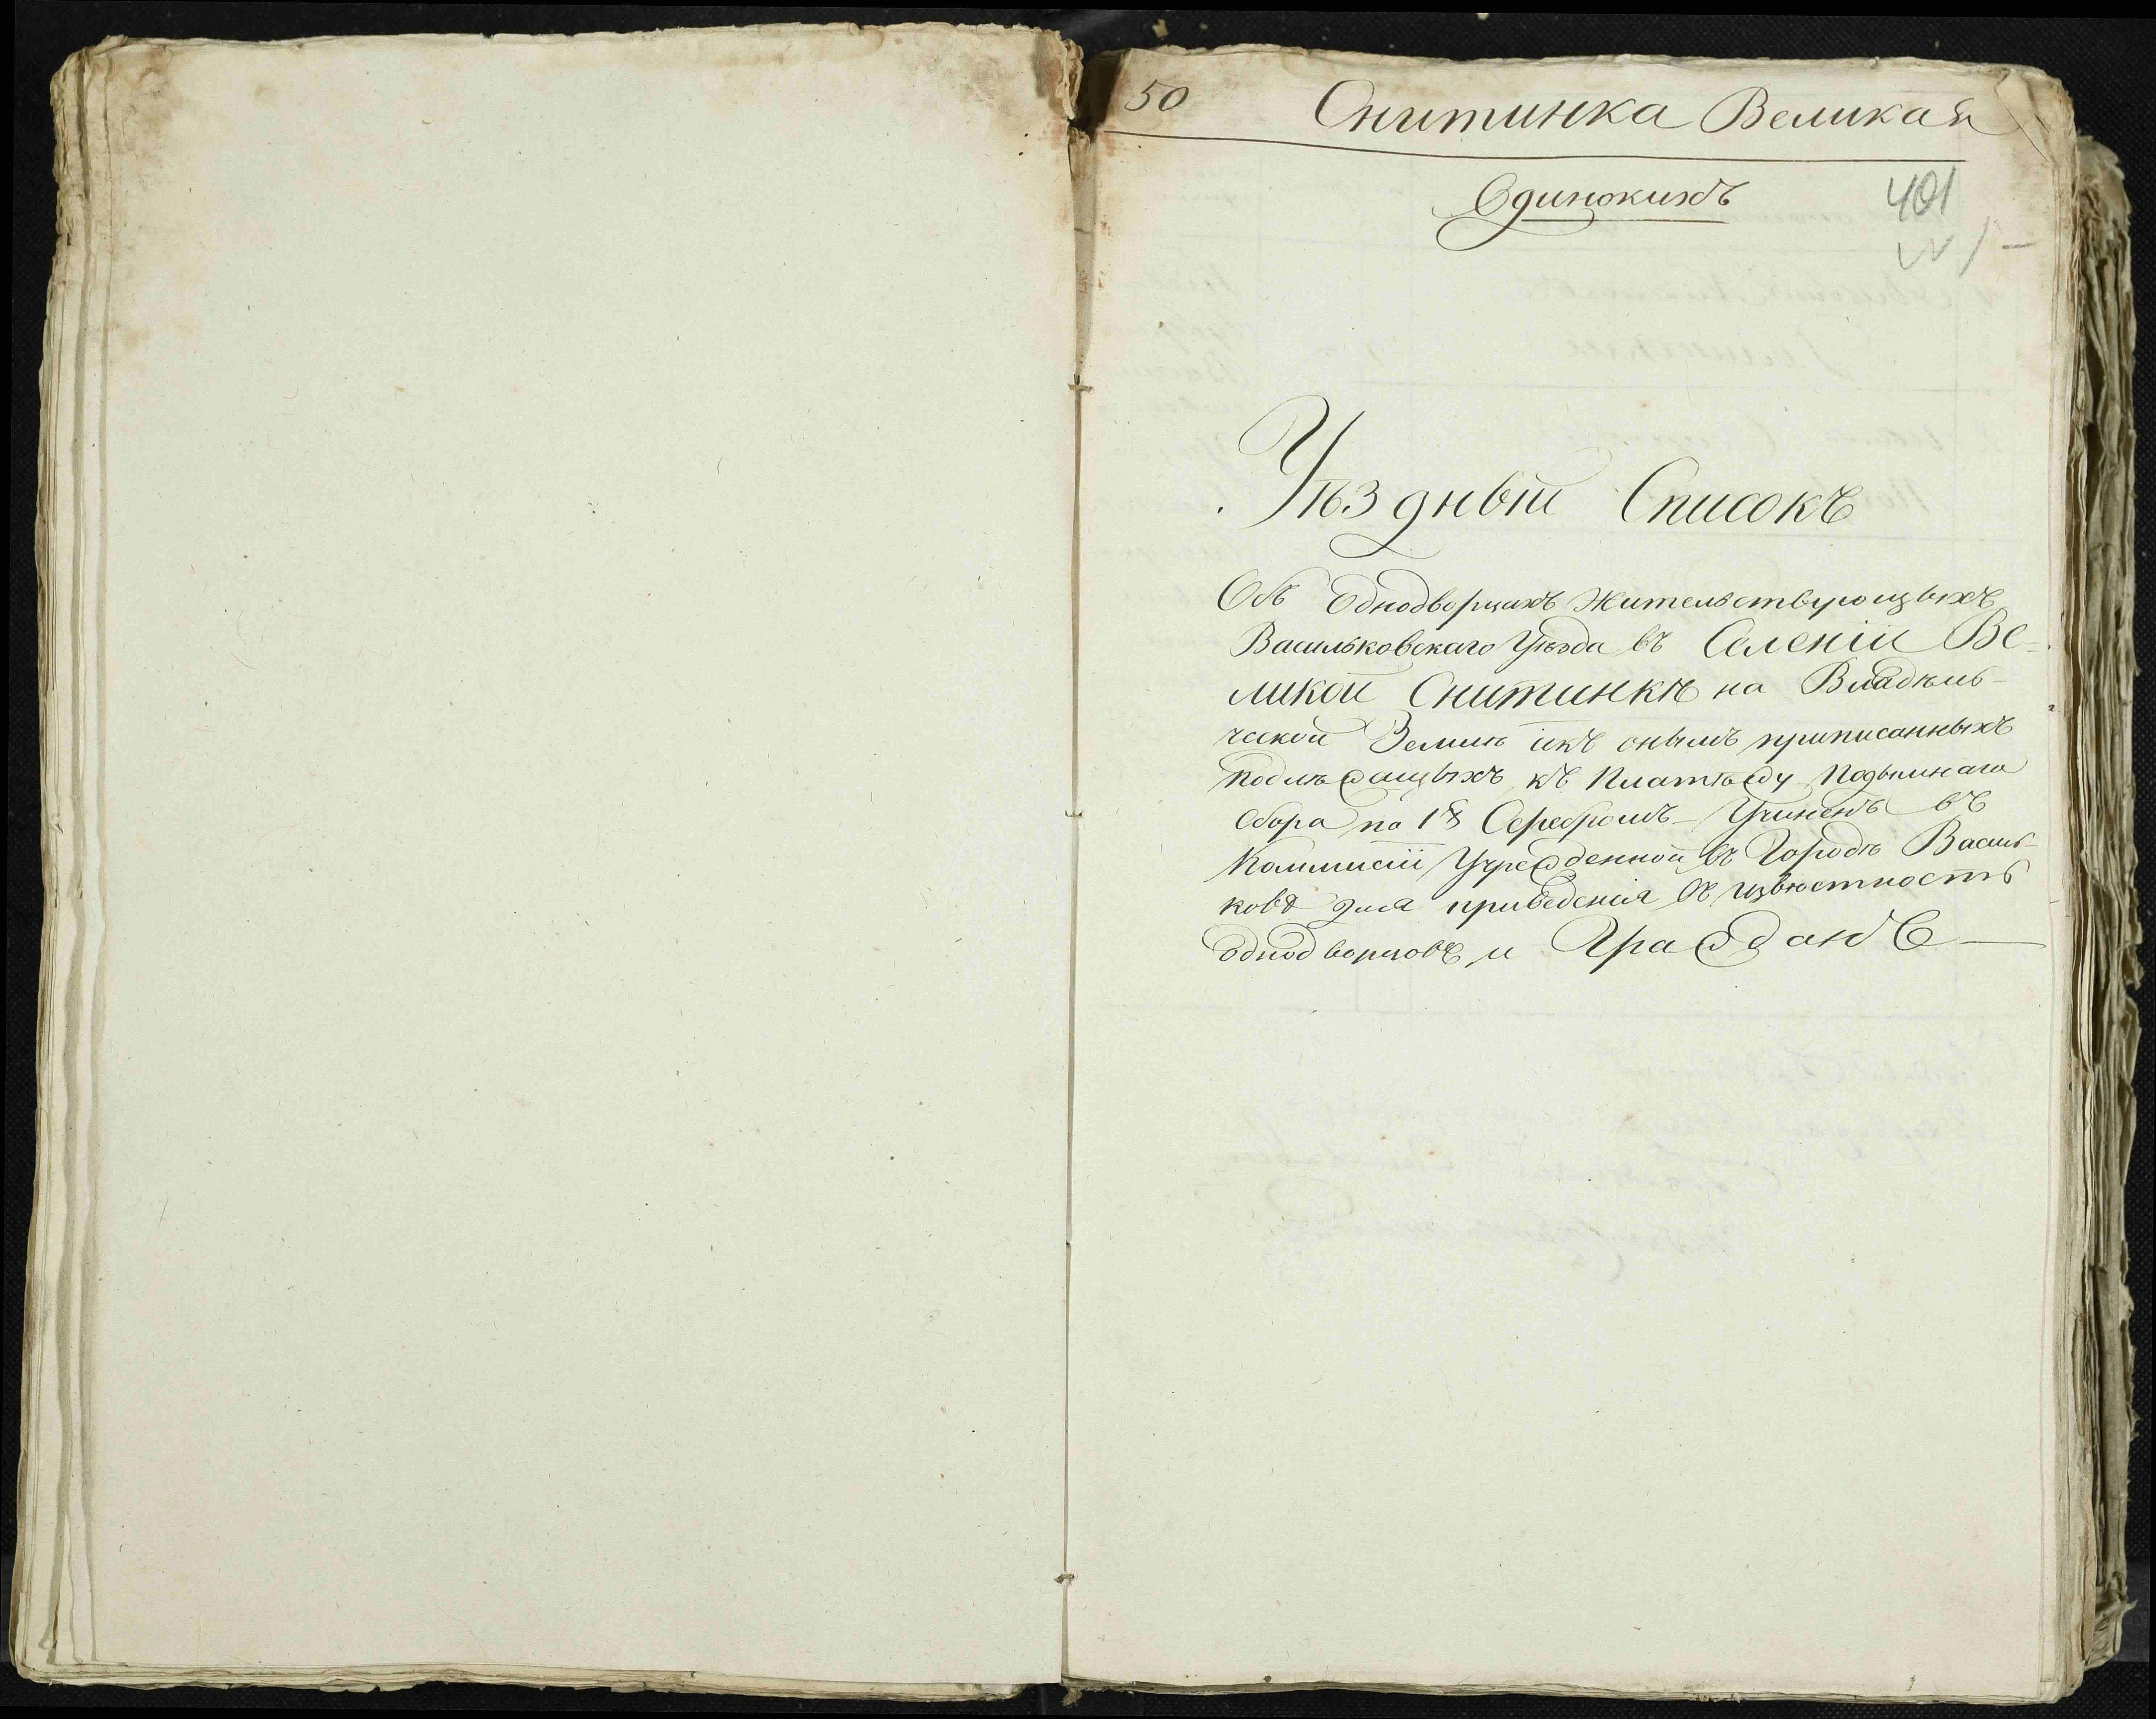 50 Снитинка Великая
Одинокихъ
401
Уѣздный Списокъ
Объ Однодворцахъ Жительствующыхъ
Васильковскаго Уѣзда въ Селеніи Ве-
ликой Снитинкѣ на Владѣль-
ческой Землѣ икъ онымъ приписанныхъ
подлѣжащыхъ къ Платѣжу Подымнаго
сбора по 1 Серебромъ Учиненъ въ
Коммисіи Учрежденной въ Городѣ Василь-
ковѣ для приведенія въ Извѣстность
Однодворцовъ и Гражданъ —